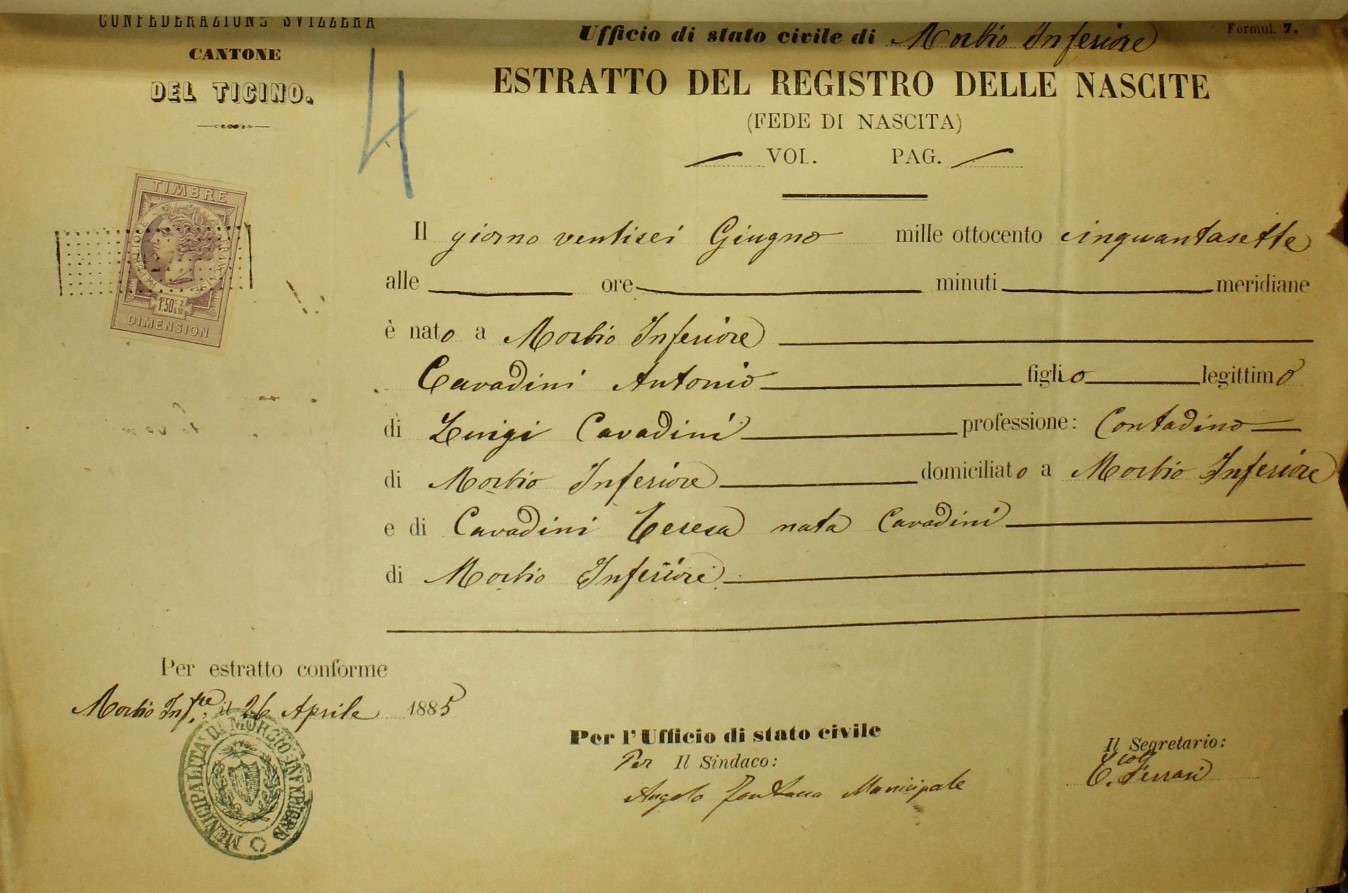 CONFEDERAZIONE SVIZZERA
CANTONE
DEL TICINO.
4
Ufficio di stato civile di Morbio Inferiore
Formul. 7.
ESTRATTO DEL REGISTRO DELLE NASCITE
(FEDE DI NASCITA)
VOL. PAG.
TIMBRE
1F50C
DIMENSION
Il giorno ventisei Giugno mille ottocento cinquantasette
alle ore minuti meridiane
è nato a Morbio Inferiore
Cavadini Antonio figlio legittimo
di Luigi Cavadini professione: Contadino
di Morbio Inferiore domiciliato a Morbio Inferiore
e di Cavadini Teresa nata Cavadini
di Morbio Inferiore
Per estratto conforme
Morbio Inf.re il 26 Aprile 1885
MUNICIPALITA' DI MORBIO INFERIORE
Per l'Ufficio di stato civile
Per Il Sindaco:
Angelo Fontana Municipale
Il Segretario:
C. Ferrari